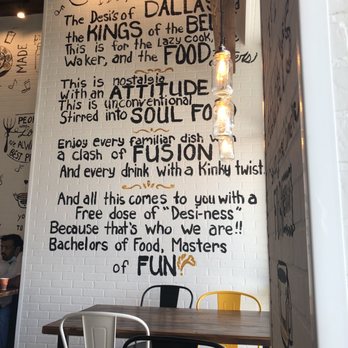 The Desi's of DALLAS
the KINGS of the BE
This is for the lazy cook,
Waker, and the FOOD
This is nostalgia
With an ATTITUDE
This is unconventional
Stirred into SOUL FO
Enjoy every familiar dish w
a clash of FUSION
And every drink with a Kinky twist.
And all this comes to you with a
Free dose of "Desi-ness"
Because that's who we are!!
Bachelors of Food, Masters
of FUN
MADE
PEOP